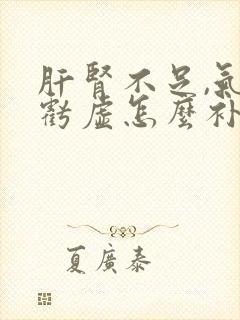 肝腎不足,氣
虧虛怎麼补
夏廣泰